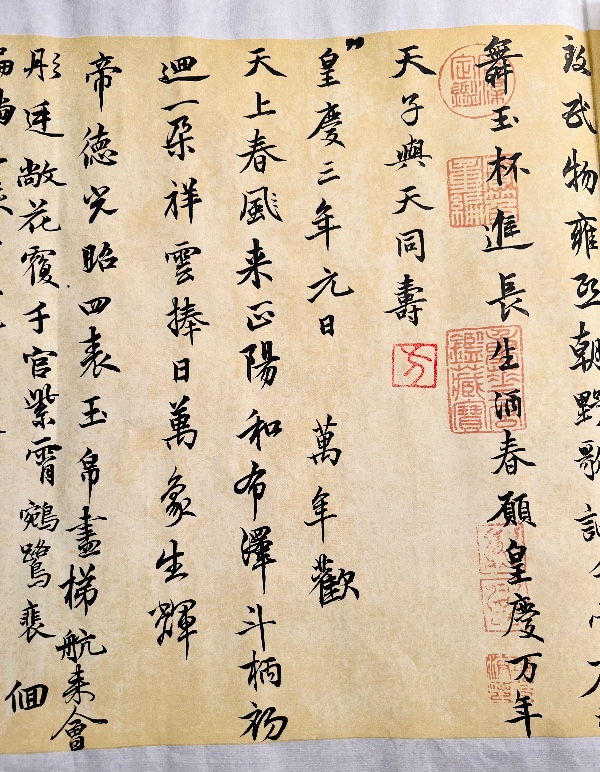 物雍熙朝野歌
舞玉杯進長生酒春願皇慶万年
天子與天同壽
皇慶三年元日 萬年歡
天上春風来正陽和布澤斗柄初
迴一朵祥雲捧日萬象生輝
帝德光昭四表玉帛盡梯航来會
彤廷敞花覆千官紫霄鵷鷺裴佪